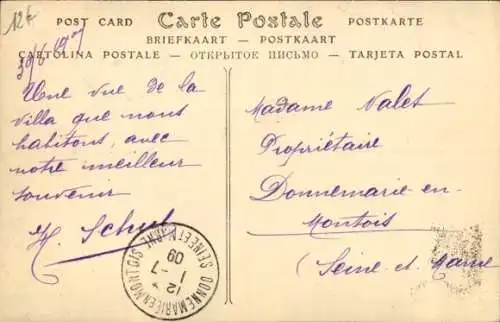 12€
POST CARD Carte Postale POSTKARTE
BRIEFKAART — POSTKAART
CARTOLINA POSTALE — ОТКРЫТОК ПИСЬМО — TARJETA POSTAL
30/6 1909
Une vue de la
villa que nous
habitons, avec
notre meilleur
souvenir
H. Schul
Madame Nalet
Propriétaire
Donnemarie-en-
Montois
(Seine et Marne
DONNEMARIE-EN-MONTOIS
SEINE-ET-MARNE
12
1-7
09